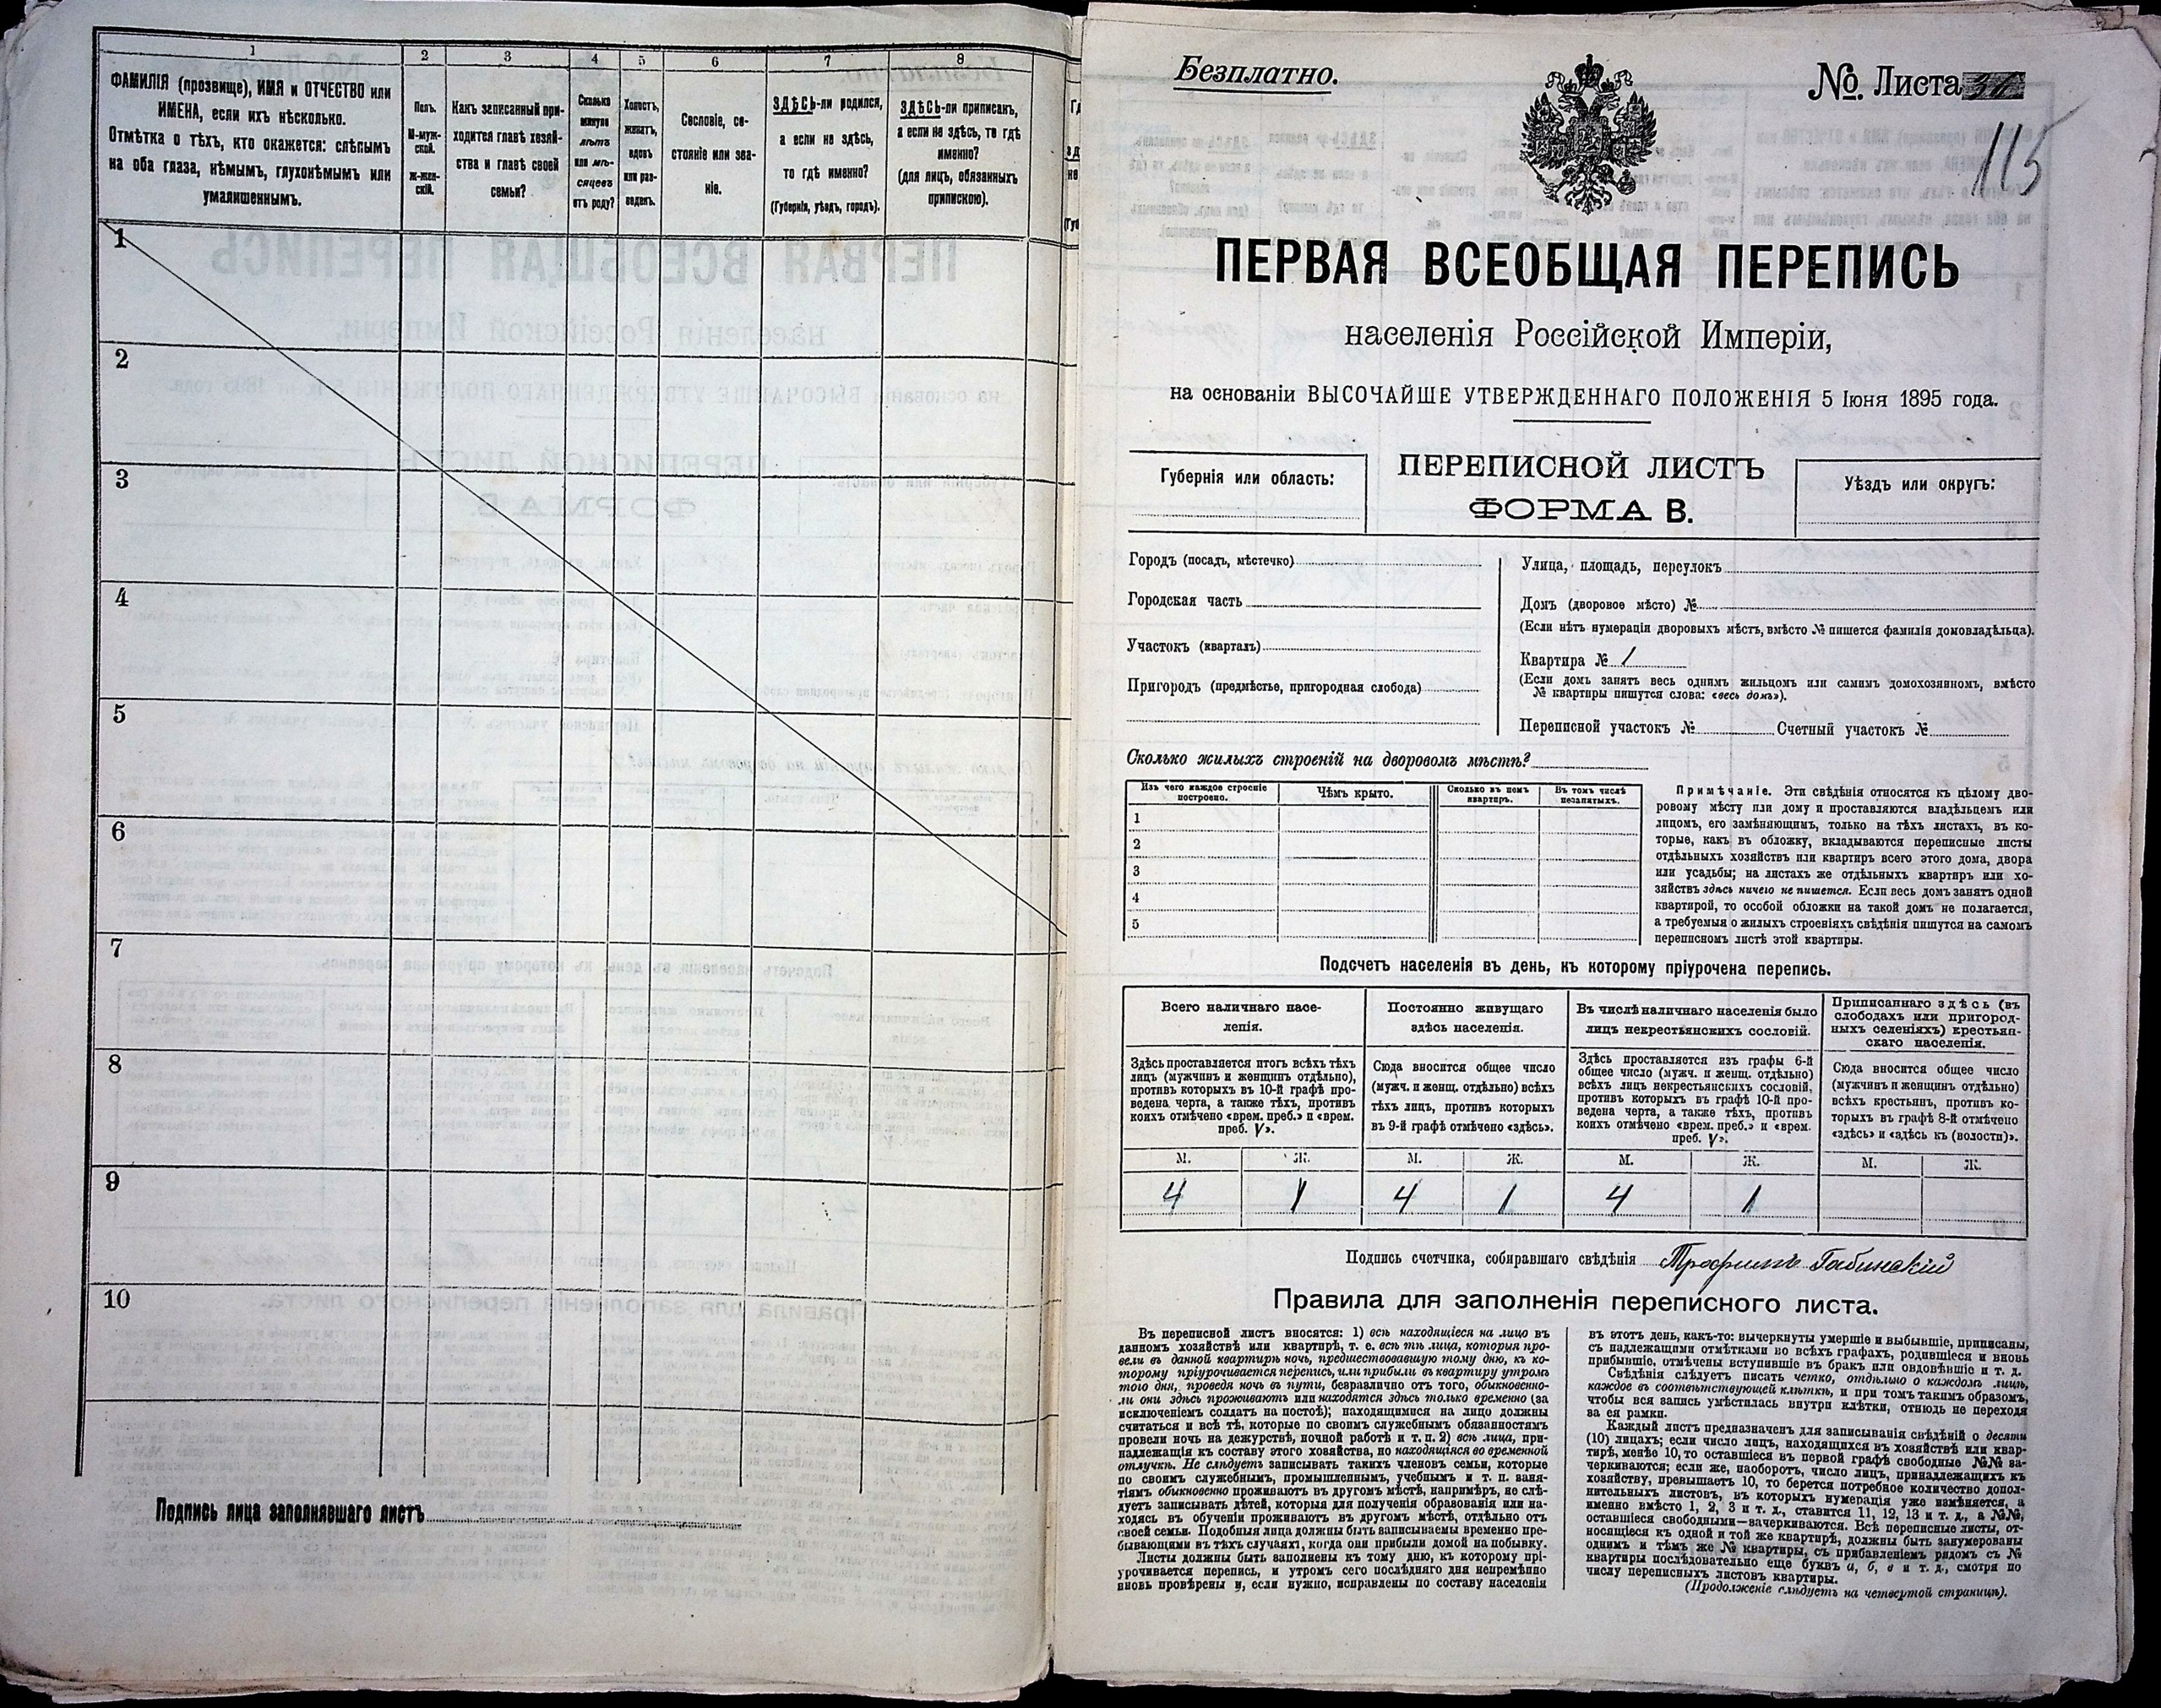 1
2
3
4
5
6
7
8
ФАМИЛІЯ (прозвище), ИМЯ и ОТЧЕСТВО или
ИМЕНА, если ихъ нѣсколько.
Отмѣтка о тѣхъ, кто окажется: слѣпымъ
на оба глаза, нѣмымъ, глухонѣмымъ или
умалишеннымъ.
Полъ.
М-муж-
ской.
Ж-жен-
скій.
Какъ записанный при-
ходится главѣ хозяй-
ства и главѣ своей
семьи?
Сколько
минуло
лѣтъ
или мѣ-
сяцевъ
отъ роду?
Холостъ,
женатъ,
вдовъ
или раз-
веденъ.
Сословіе, со-
стояніе или зва-
ніе.
ЗДѢСЬ-ли родился,
а если не здѣсь,
то гдѣ именно?
(Губернія, уѣздъ, городъ).
ЗДѢСЬ-ли приписанъ,
а если не здѣсь, то гдѣ
именно?
(для лицъ, обязанныхъ
припискою).
1
2
3
4
5
6
7
8
9
10
Подпись лица заполнявшаго листъ
Безплатно.
№. Листа
115
ПЕРВАЯ ВСЕОБЩАЯ ПЕРЕПИСЬ
населенія Россійской Имперіи,
на основаніи ВЫСОЧАЙШЕ УТВЕРЖДЕННАГО ПОЛОЖЕНІЯ 5 Іюня 1895 года.
Губернія или область:
ПЕРЕПИСНОЙ ЛИСТЪ
ФОРМА В.
Уѣздъ или округъ:
Городъ (посадъ, мѣстечко)
Городская часть
Участокъ (кварталъ)
Пригородъ (предмѣстье, пригородная слобода)
Улица, площадь, переулокъ
Домъ (дворовое мѣсто) №
(Если нѣтъ нумераціи дворовыхъ мѣстъ, вмѣсто № пишется фамилія домовладѣльца).
Квартира № 1
(Если домъ занятъ весь однимъ жильцомъ или самимъ домохозяиномъ, вмѣсто
№ квартиры пишутся слова: «весь домъ»).
Переписной участокъ № Счетный участокъ №
Сколько жилыхъ строеній на дворовомъ мѣстѣ?
Изъ чего каждое строеніе
построено.
Чѣмъ крыто.
Сколько въ немъ
квартиръ.
Въ томъ числѣ
незанятыхъ.
1
2
3
4
5
Примѣчаніе. Эти свѣдѣнія относятся къ цѣлому дво-
ровому мѣсту или дому и проставляются владѣльцемъ или
лицомъ, его замѣняющимъ, только на тѣхъ листахъ, въ ко-
торые, какъ въ обложку, вкладываются переписные листы
отдѣльныхъ хозяйствъ или квартиръ всего этого дома, двора
или усадьбы; на листахъ же отдѣльныхъ квартиръ или хо-
зяйствъ здѣсь ничего не пишется. Если весь домъ занятъ одной
квартирой, то особой обложки на такой домъ не полагается,
а требуемыя о жилыхъ строеніяхъ свѣдѣнія пишутся на самомъ
переписномъ листѣ этой квартиры.
Подсчетъ населенія въ день, къ которому пріурочена перепись.
Всего наличнаго насе-
ленія.
Здѣсь проставляется итогъ всѣхъ тѣхъ
лицъ (мужчинъ и женщинъ отдѣльно),
противъ которыхъ въ 10-й графѣ про-
ведена черта, а также тѣхъ, противъ
коихъ отмѣчено «врем. преб.» и «врем.
преб. V».
Постоянно живущаго
здѣсь населенія.
Сюда вносится общее число
(мужч. и женщ. отдѣльно) всѣхъ
тѣхъ лицъ, противъ которыхъ
въ 9-й графѣ отмѣчено «здѣсь».
Въ числѣ наличнаго населенія было
лицъ некрестьянскихъ сословій.
Здѣсь проставляется изъ графы 6-й
общее число (мужч. и женщ. отдѣльно)
всѣхъ лицъ некрестьянскихъ сословій,
противъ которыхъ въ графѣ 10-й про-
ведена черта, а также тѣхъ, противъ
коихъ отмѣчено «врем. преб.» и «врем.
преб. V».
Приписаннаго здѣсь (въ
слободахъ или пригород-
ныхъ селеніяхъ) крестьян-
скаго населенія.
Сюда вносится общее число
(мужчинъ и женщинъ отдѣльно)
всѣхъ крестьянъ, противъ ко-
торыхъ въ графѣ 8-й отмѣчено
«здѣсь» и «здѣсь къ (волости)».
М. Ж. М. Ж. М. Ж. М. Ж.
4 1 4 1 4 1
Подпись счетчика, собиравшаго свѣдѣнія Трофимъ Габинскій
Правила для заполненія переписного листа.
Въ переписной листъ вносятся: 1) всѣ находящіеся на лицо въ
данномъ хозяйствѣ или квартирѣ, т. е. всѣ тѣ лица, которыя про-
вели въ данной квартирѣ ночь, предшествовавшую тому дню, къ ко-
торому пріурочивается перепись, или прибыли въ квартиру утромъ
того дня, проведя ночь въ пути, безразлично отъ того, обыкновенно-
ли они здѣсь проживаютъ или находятся здѣсь только временно (за
исключеніемъ солдатъ на постоѣ); находящимися на лицо должны
считаться и всѣ тѣ, которые по своимъ служебнымъ обязанностямъ
провели ночь на дежурствѣ, ночной работѣ и т. п. 2) всѣ лица, при-
надлежащія къ составу этого хозяйства, но находящіяся во временной
отлучкѣ. Не слѣдуетъ записывать такихъ членовъ семьи, которые
по своимъ служебнымъ, промышленнымъ, учебнымъ и т. п. заня-
тіямъ обыкновенно проживаютъ въ другомъ мѣстѣ, напримѣръ, не слѣ-
дуетъ записывать дѣтей, которыя для полученія образованія или на-
ходясь въ обученіи проживаютъ въ другомъ мѣстѣ, отдѣльно отъ
своей семьи. Подобныя лица должны быть записываемы временно пре-
бывающими въ тѣхъ случаяхъ, когда они прибыли домой на побывку.
Листы должны быть заполнены къ тому дню, къ которому прі-
урочивается перепись, и утромъ сего послѣдняго дня непремѣнно
вновь провѣрены и, если нужно, исправлены по составу населенія
въ этотъ день, какъ-то: вычеркнуты умершіе и выбывшіе, приписаны,
съ надлежащими отмѣтками во всѣхъ графахъ, родившіеся и вновь
прибывшіе, отмѣчены вступившіе въ бракъ или овдовѣвшіе и т. д.
Свѣдѣнія слѣдуетъ писать четко, отдѣльно о каждомъ лицѣ,
каждое въ соотвѣтствующей клѣткѣ, и при томъ такимъ образомъ,
чтобы вся запись умѣстилась внутри клѣтки, отнюдь не переходя
за ея рамки.
Каждый листъ предназначенъ для записыванія свѣдѣній о десяти
(10) лицахъ; если число лицъ, находящихся въ хозяйствѣ или квар-
тирѣ, менѣе 10, то оставшіеся въ первой графѣ свободные №№ за-
черкиваются; если же, наоборотъ, число лицъ, принадлежащихъ къ
хозяйству, превышаетъ 10, то берется потребное количество допол-
нительныхъ листовъ, въ которыхъ нумерація уже измѣняется, а
именно вмѣсто 1, 2, 3 и т. д., ставится 11, 12, 13 и т. д., а №№,
оставшіеся свободными—зачеркиваются. Всѣ переписные листы, от-
носящіеся къ одной и той же квартирѣ, должны быть занумерованы
однимъ и тѣмъ же № квартиры, съ прибавленіемъ рядомъ съ №
квартиры послѣдовательно еще буквъ а, б, в и т. д., смотря по
числу переписныхъ листовъ квартиры.
(Продолженіе слѣдуетъ на четвертой страницѣ).